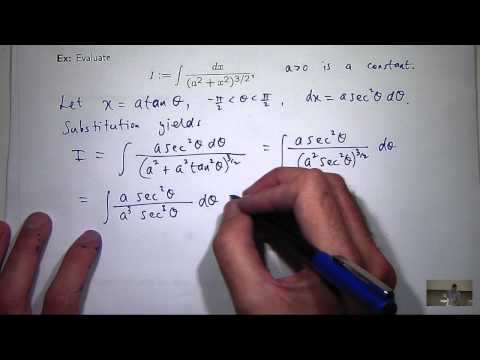 Ex: Evaluate
I := ∫ dx / (a² + x²)^{3/2}, a>0 is a constant.
Let x = a tan θ, -π/2 < θ < π/2, dx = a sec²θ dθ.
Substitution yields
I = ∫ a sec²θ dθ / (a² + a² tan²θ)^{3/2} = ∫ a sec²θ / (a² sec²θ)^{3/2} dθ
= ∫ a sec²θ / a³ sec²θ dθ